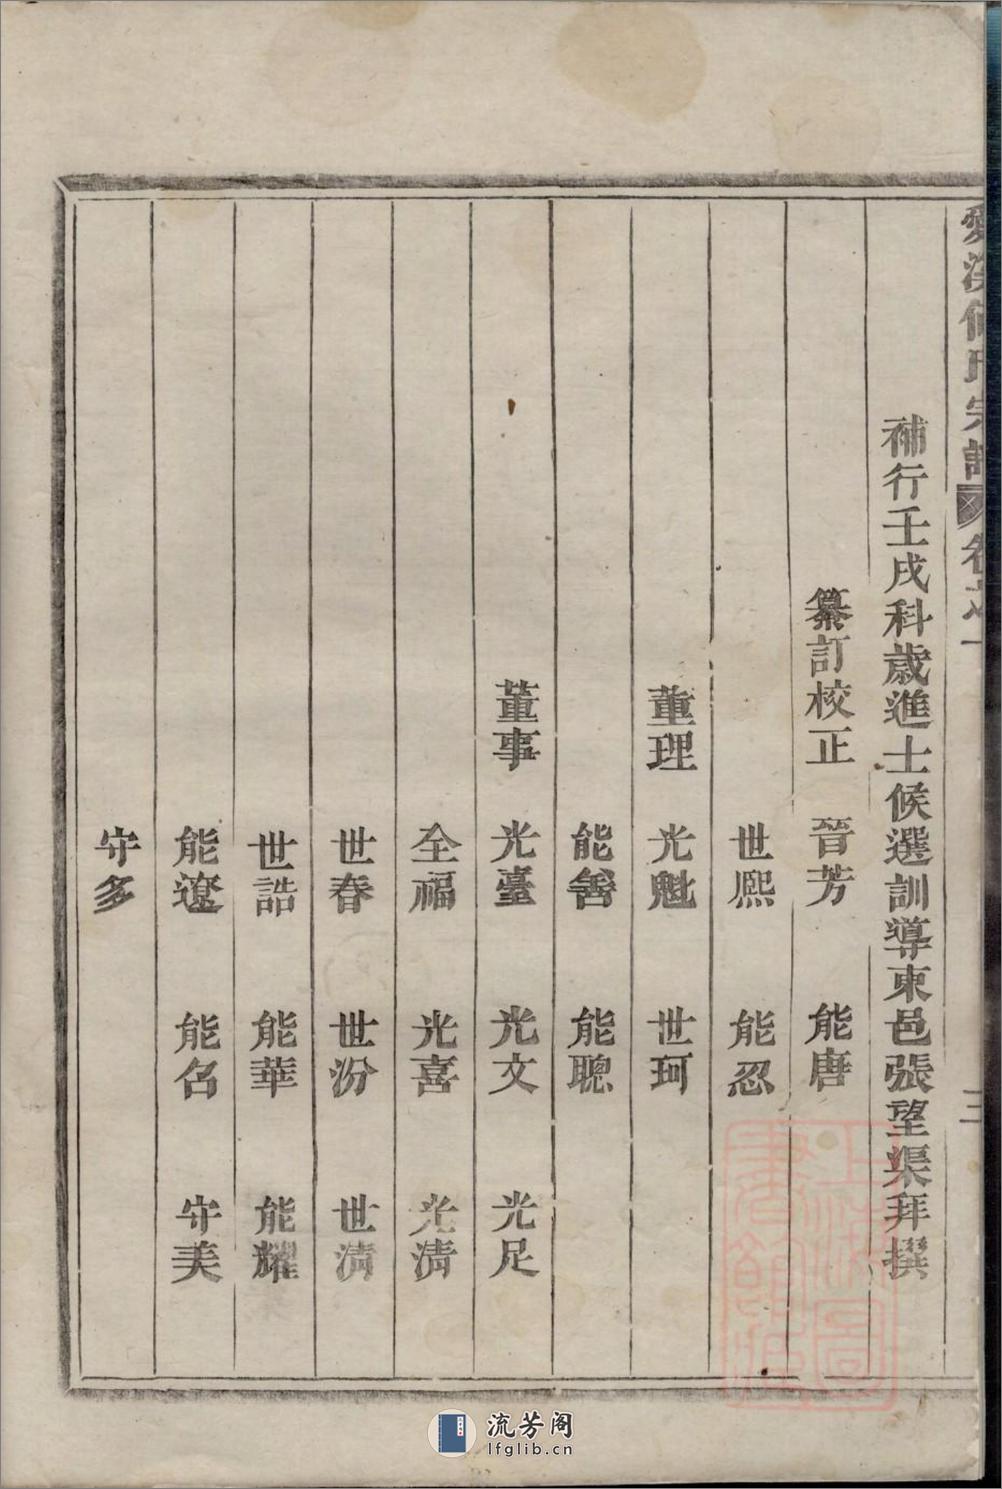 補行壬戌科歲進士候選訓導東邑張望渠拜撰
纂訂校正 晉芳 能唐
世熙 能忍
董理 光魁 世珂
能善 能聰
董事 光臺 光文 光足
全福 光喜 光清
世春 世汾 世清
世誥 能華 能耀
能遼 能名 守美
守多
氏宗譜 卷之一 三
上海圖書館藏
流芳阁
lfglib.cn